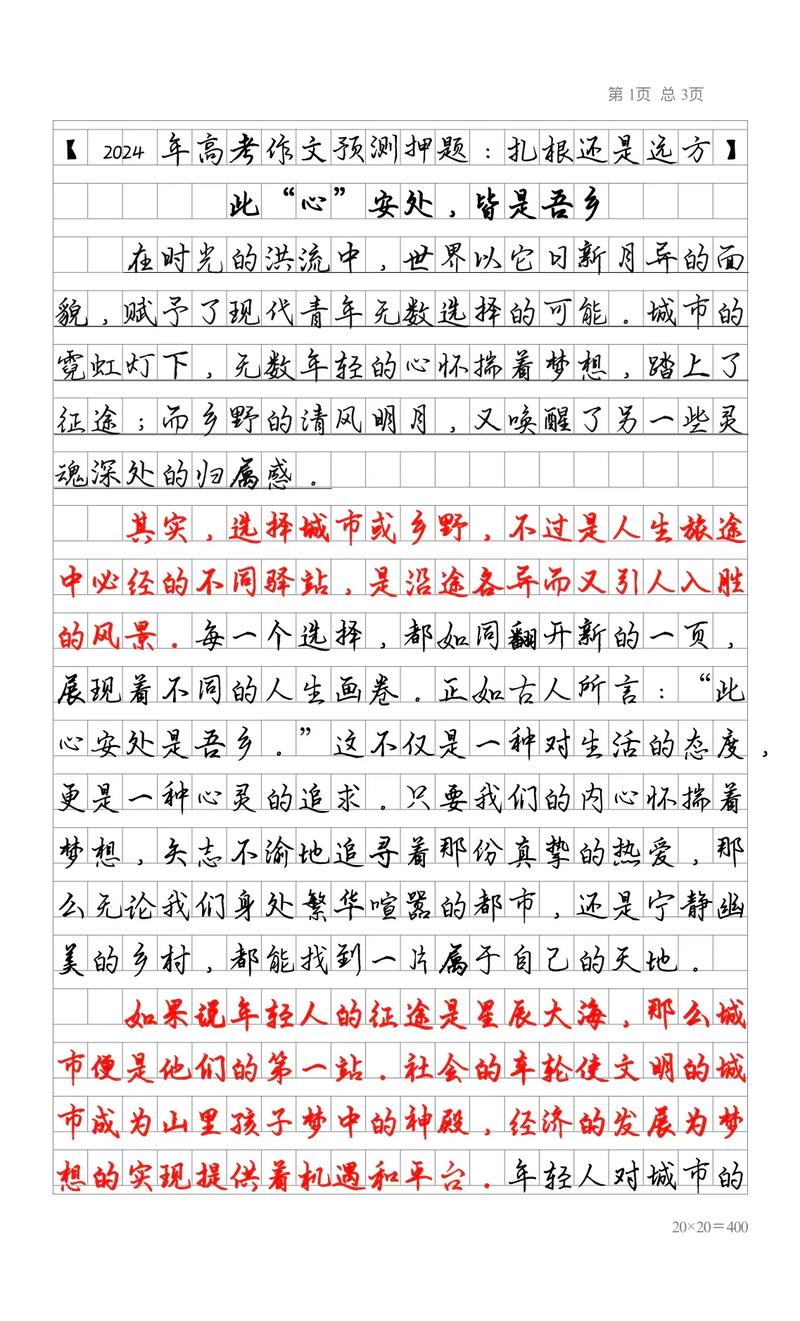 第1页 总3页
【 2024 年高考作文预测押题：扎根还是远方】
此“心”安处，皆是吾乡
在时光的洪流中，世界以它日新月异的面
貌，赋予了现代青年无数选择的可能。城市的
霓虹灯下，无数年轻的心怀揣着梦想，踏上了
征途；而乡野的清风明月，又唤醒了另一些灵
魂深处的归属感。
其实，选择城市或乡野，不过是人生旅途
中必经的不同驿站，是沿途各异而又引人入胜
的风景。每一个选择，都如同翻开新的一页，
展现着不同的人生画卷。正如古人所言：“此
心安处是吾乡。”这不仅是一种对生活的态度，
更是一种心灵的追求。只要我们的内心怀揣着
梦想，矢志不渝地追寻着那份真挚的热爱，那
么无论我们身处繁华喧嚣的都市，还是宁静幽
美的乡村，都能找到一片属于自己的天地。
如果说年轻人的征途是星辰大海，那么城
市便是他们的第一站。社会的车轮使文明的城
市成为山里孩子梦中的神殿，经济的发展为梦
想的实现提供着机遇和平台。年轻人对城市的
20×20＝400